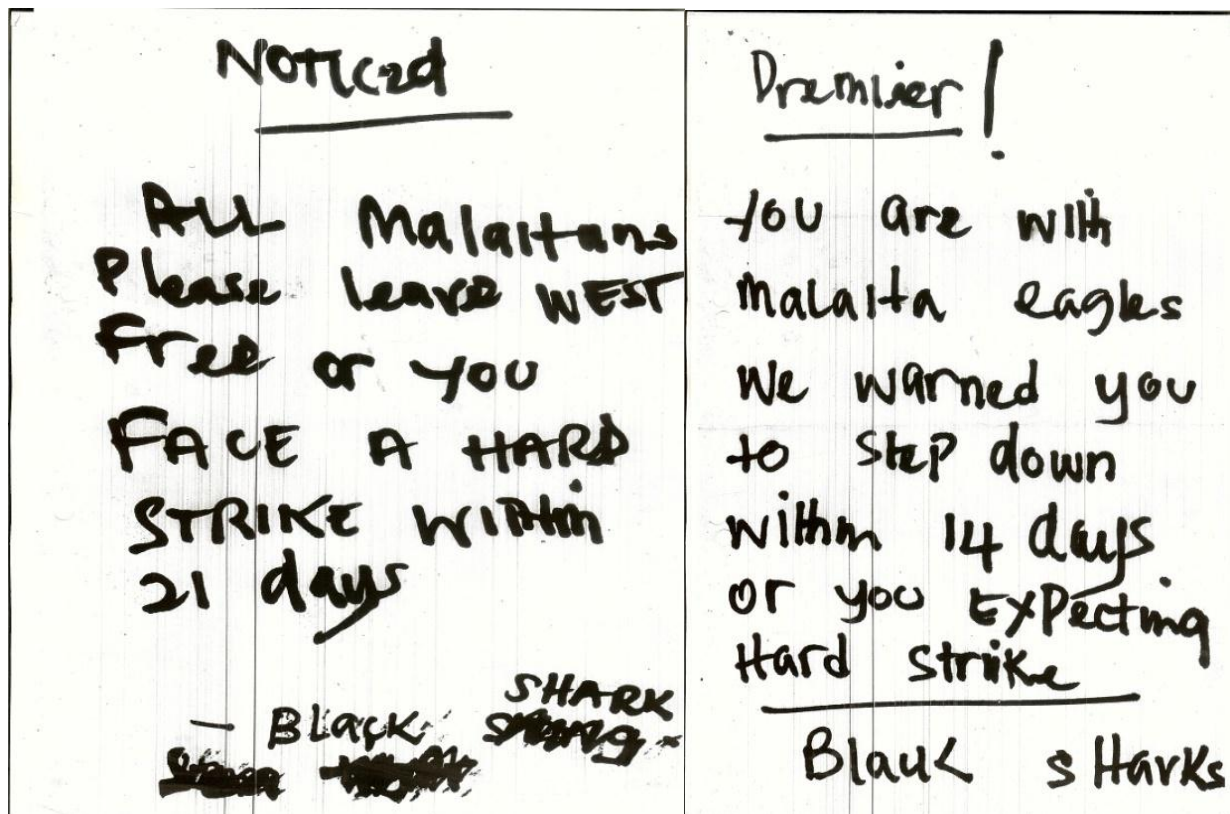 Noticed
ALL Malaitans
Please leave WEST
Free or you
FACE A HARD
STRIKE WITHIN
21 days
- Black SHARK
Premier!
you are with
malaita eagles
We warned you
to step down
within 14 days
or you Expecting
Hard strike
Black sHarks